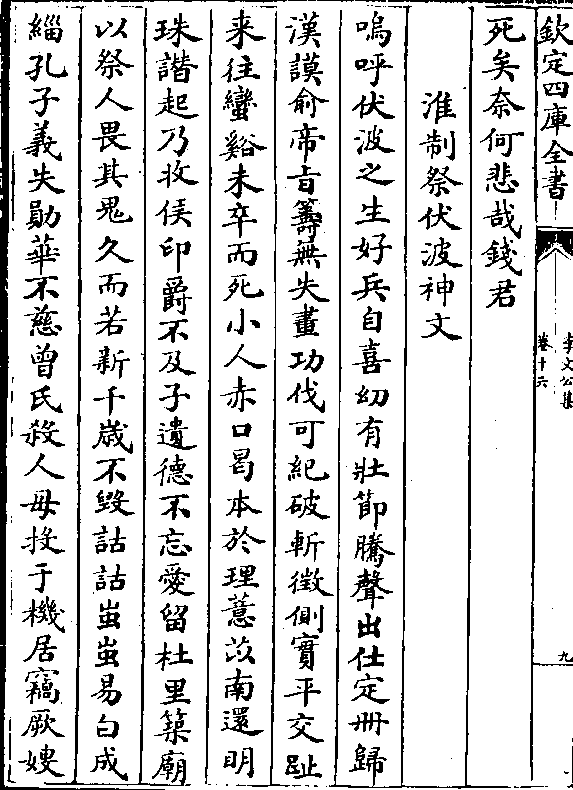 欽定四庫全書
李文公集
卷十六
九
死矣奈何悲哉錢君
淮制祭伏波神文
嗚呼伏波之生好兵自喜幼有壯節騰聲出仕定冊歸
漢謨俞帝旨籌無失畫功伐可紀破斬徵側實平交趾
来往蠻谿未卒而死小人赤口曷本於理薏苡南還明
珠諧起乃收侯印爵不及子遺德不忘愛留杜里築廟
以祭人畏其鬼久而若新千歳不毀詁詁蚩蚩易白成
緇孔子義失勛華不慈曾氏殺人毋投于機居竊厥嫂